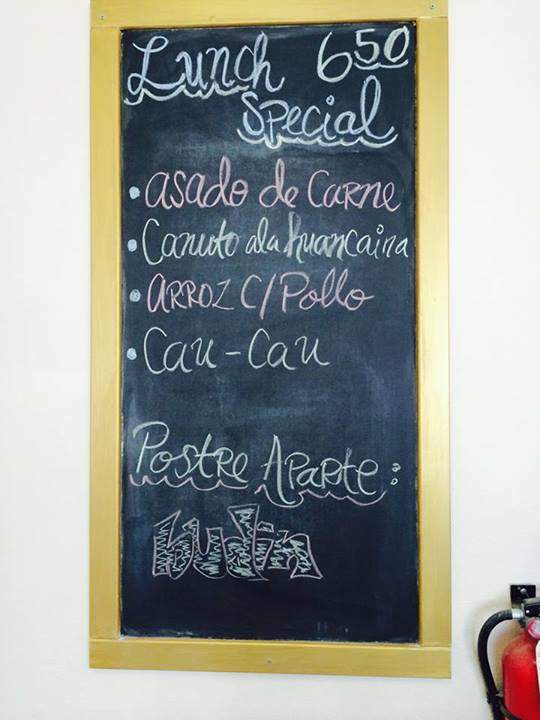 Lunch 6 50
Special
• Asado de Carne
• Canuto a la huancaina
• ARROZ C/Pollo
• Cau-Cau
Postre Aparte:
budin